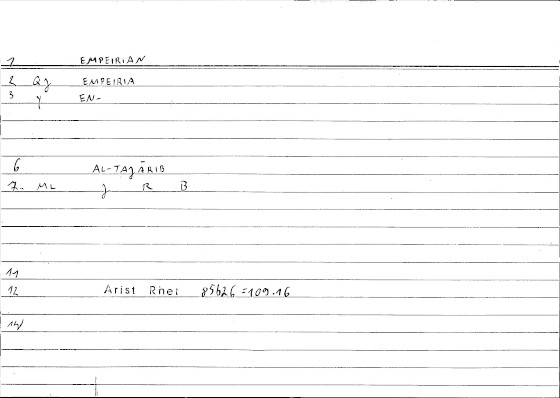 1 EMPEIRIAN
2 Qj EMPEIRIA
3 y EN-
6 AL-TAJĀRIB
7. ML J R B
11
12 Arist Rhet 85b26 =109.16
14